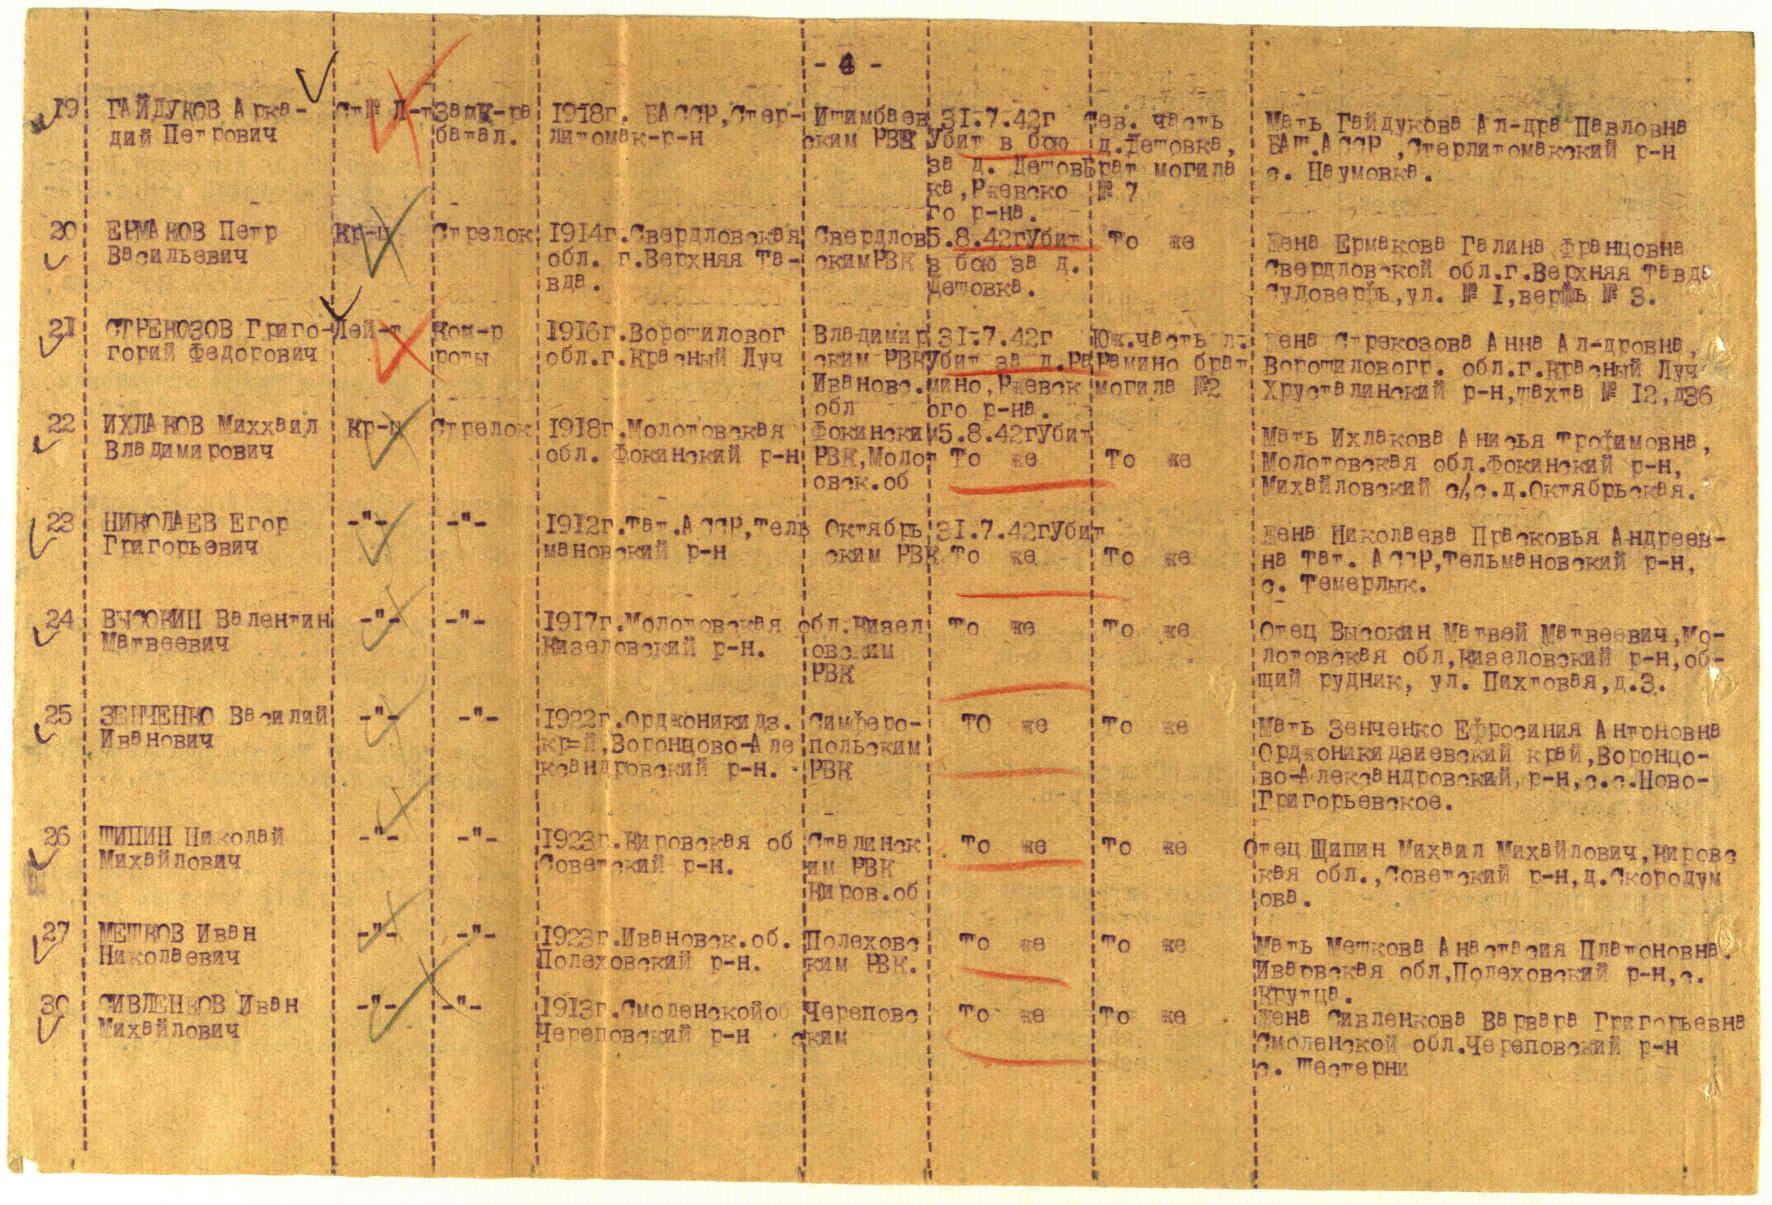 - 4 -
19 ГАЙДУКОВ Арка- Ст. Л-т Зам.к-ра 1918г. БАССР,Стер- Ишимбаев 31.7.42г Сев. часть Мать Гайдукова Ал-дра Павловна
дий Петрович батал. литомак-р-н ским РВК Убит в бою д.Дешовка, БАШ.АССР ,Стерлитомакский р-н
за д. Дешов Брат могила с. Наумовка.
ка,Ржевско № 7
го р-на.
20 ЕРМАКОВ Петр Кр-ц Стрелок 1914г.Свердловская Свердлов 5.8.42гУбит То же Жена Ермакова Галина Францовна
Васильевич обл. г.Верхняя Та- скимРВК в бою за д. Свердловской обл.г.Верхняя Тавда
вда. Дешовка. Судоверфь,ул. № I,верфь № 3.
21 СТРЕКОЗОВ Григо- Лей-т Ком-р 1916г.Ворошиловог Владимир 31.7.42г Юж.часть д. Жена Стрекозова Анна Ал-дровна,
горий Федорович роты обл.г.Красный Луч ским РВК Убит за д.Ра Рамино брат Ворошиловогр. обл.г.Красный Луч
Иваново. мино,Ржевск могила №2 Хрусталинский р-н,шахта № 12,д36
обл ого р-на.
22 ИХЛАКОВ Миххаил Кр-ц Стрелок 1918г.Молотовская Фокинским 5.8.42гУбит Мать Ихлакова Анисья Трофимовна,
Владимирович обл. Фокинский р-н РВК,Молот То же То же Молотовская обл.Фокинский р-н,
овск.об Михайловский с/с.д.Октябрьская.
23 НИКОЛАЕВ Егор -"- -"- 1912г.Тат.АССР,Тель Октябрь 31.7.42гУбит Жена Николаева Прасковья Андреев-
Григорьевич мановский р-н ским РВК То же То же на Тат. АССР,Тельмановский р-н,
с. Темерлык.
24 ВЫСОКИН Валентин -"- -"- 1917г.Молотовская обл.Кизел То же То же Отец Высокин Матвей Матвеевич,Мо-
Матвеевич Кизеловский р-н. овским лотовская обл,Кизеловский р-н,об-
РВК щий рудник, ул. Пихтовая,д.3.
25 ЗЕНЧЕНКО Василий -"- -"- 1922г.Орджоникидз. Симферо- То же То же Мать Зенченко Ефросиния Антоновна
Иванович кр-й,Воронцово-Але польским Орджоникидзиевский край,Воронцо-
ксандровский р-н. РВК во-Александровский,р-н,с.с.Ново-
Григорьевское.
26 ШИПИН Николай -"- -"- 1923г.Кировская об Сталинск То же То же Отец Щипин Михаил Михайлович,Кировс
Михайлович Советский р-н. им РВК кая обл.,Советский р-н,д.Скородум
Киров.об ова.
27 МЕШКОВ Иван -"- -"- 1923г.Ивановск.об. Полеховс То же То же Мать Мешкова Анастасия Платоновна.
Николаевич Полеховский р-н. ким РВК. Ивавская обл,Полеховский р-н,с.
Крутца.
30 СИВЛЕНКОВ Иван -"- -"- 1913г.Смоленскойоб Череповс То же То же Жена Сивленкова Варвара Григорьевна
Михайлович Череповский р-н ским Смоленской обл.Череповский р-н
с. Шестерни